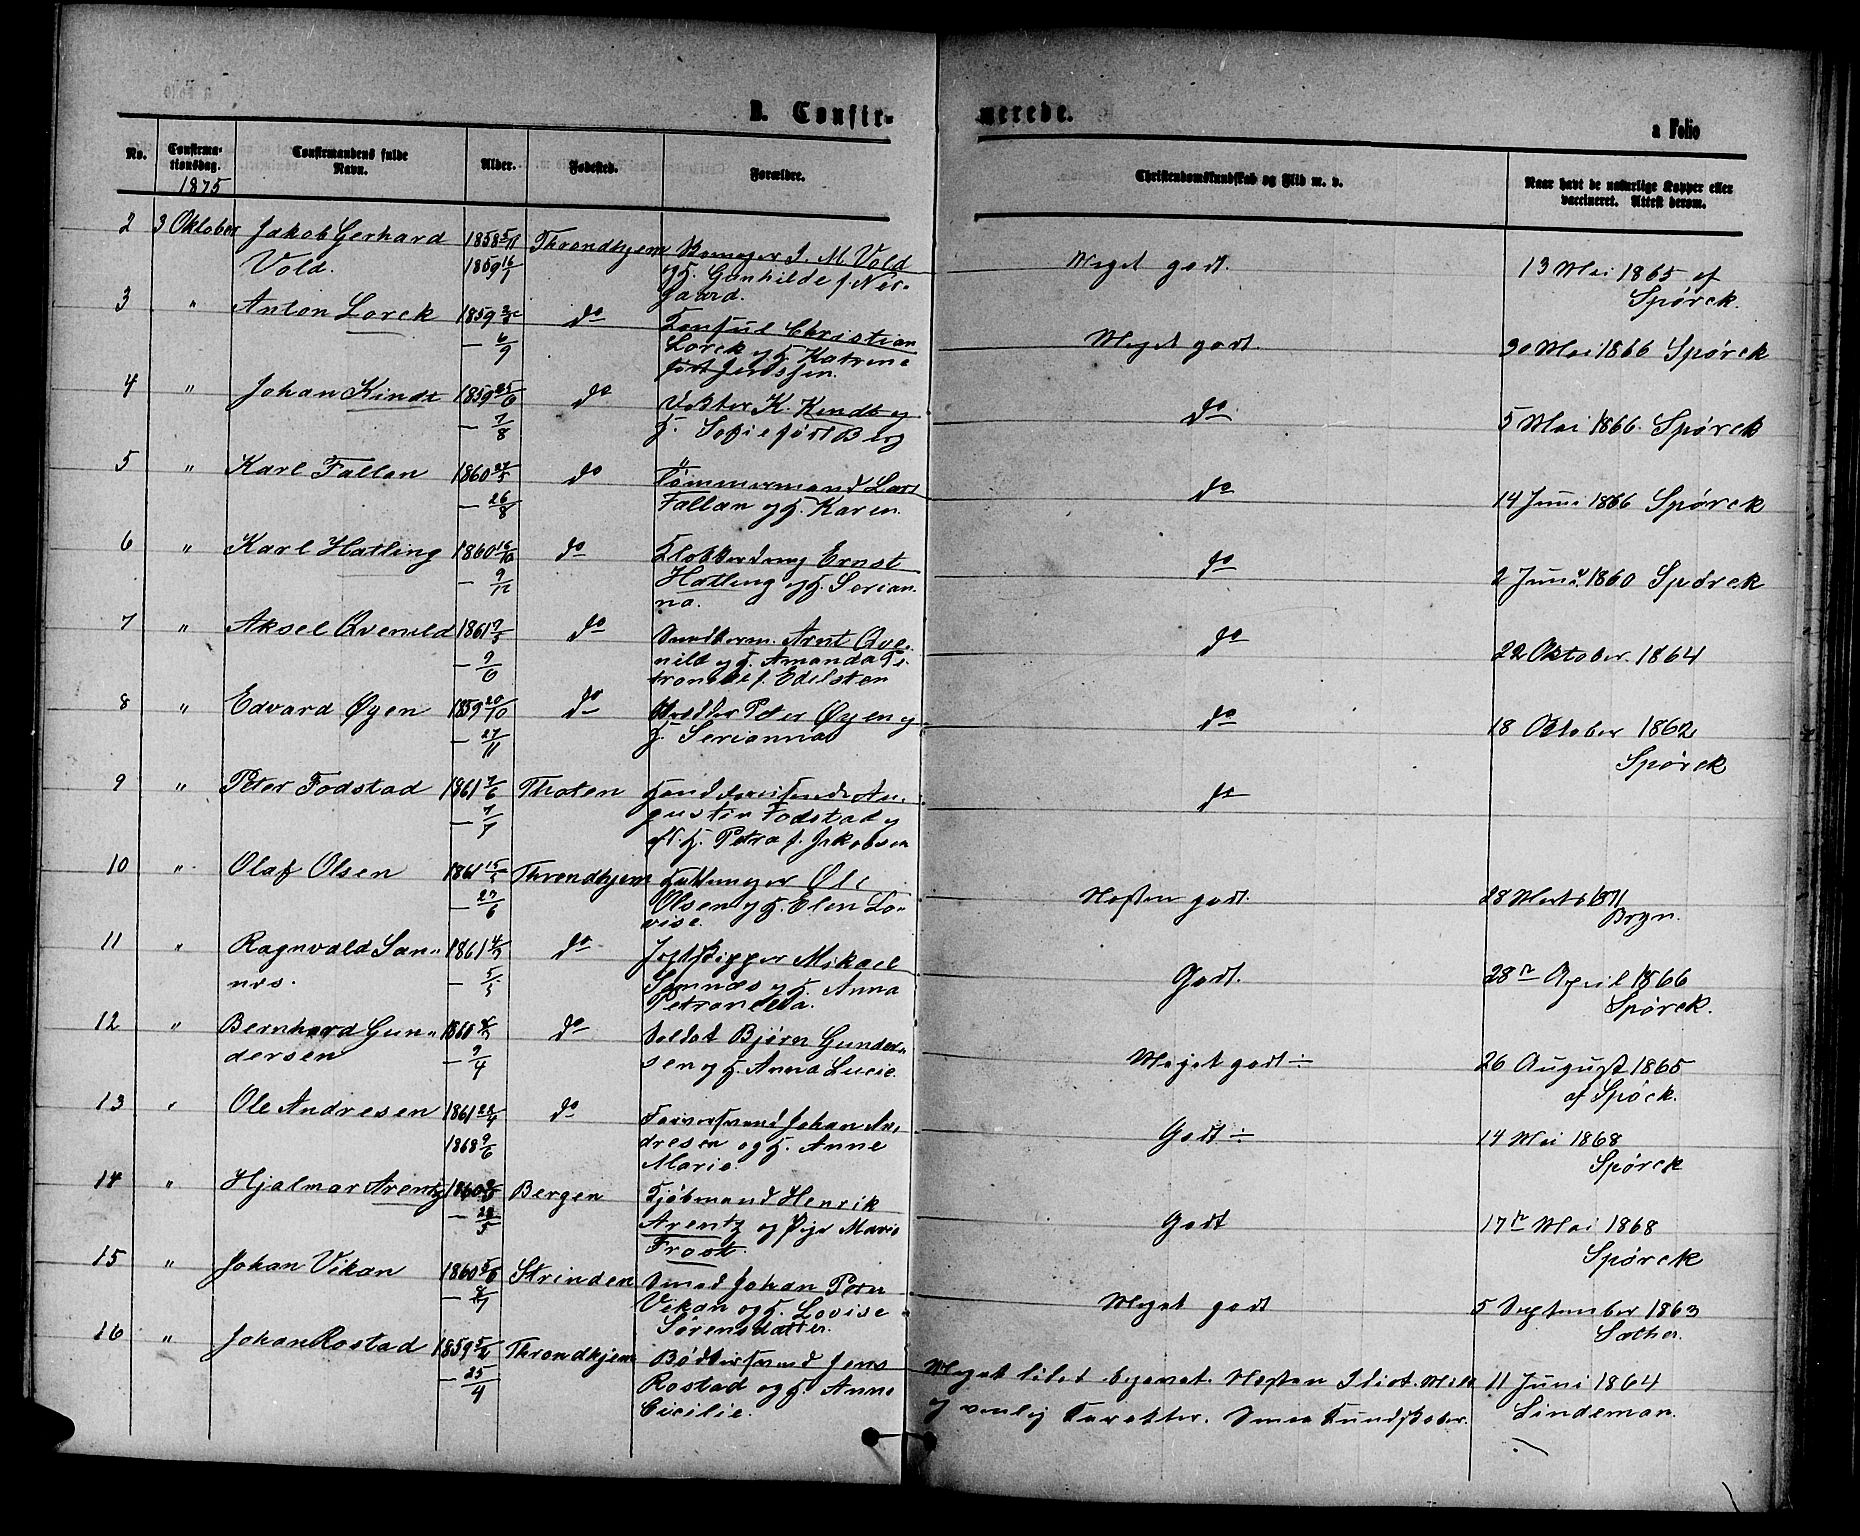 B. Confir-
merede.
a Folio
No.
Confirma-
tionsdag.
1875
Confirmandens fulde
Navn.
Alder.
Fødested.
Forældre.
Christendomskundskab og Flid m. v.
Naar havt de naturlige Kopper eller
vaccineret. Attest derom.
2 3 Oktober Jakob Gerhard 1858 5/11 Throndhjem J. M. Vold
Vold. 1859 16/1 og H. Gunhilde f. Nor-
gaard.
Meget godt. 13 Mai 1865 af
Spørck.
3 " Anton Lorck 1859 do Konsul Christian
– 6/9 Lorck og H. Katrine
født Jenssen.
Meget godt. 30 Mai 1866 Spørck
4 " Johan Kindt 1859 do Doktor K. Kindt og
– 7/8 H. Sofie født Berg
do 5 Mai 1866. Spørck
5 " Karl Fallan 1860 27/5 do Tømmermand Lars
– 26/8 Fallan og H. Karen.
do 14 Juni 1866 Spørck
6 " Karl Hatling 1860 16/10 do Ernst
– 9/12 Hatling og H. Serian-
na.
do 2 Juni 1860 Spørck
7 " Aksel Qvenild 1861 do Arnt Qve-
– nild og H. Amanda Pe-
tronelle f. Edelsten
do 22 Oktober 1864
8 " Edvard Øyen 1859 20/10 do Peter Øyen og
– 27/11 H. Serianna
do 18 Oktober 1862
Spørck
9 " Peter Fodstad 1861 7/6 Thoten Handelsreisende Au-
– 7/7 gustin Fodstad og
H. Petra f. Jakobsen
do
10 " Olaf Olsen 1861 15/5 Throndhjem Ole
– 27/6 Olsen og H. Elen Lo-
vise.
Næsten godt. 28 Marts 1871
Bryn.
11 " Ragnvald San- 1861 do Jagtskipper Mikael
nes. – 5/5 Samnæs og H. Anna
Petronella.
Godt. 28 April 1866
Spørck.
12 " Bernhard Gun- 1860 do Soldat Bjørn Gunder-
dersen – 9/4 sen og H. Anna Lucie.
Meget godt ÷ 26 August 1865
af Spøck.
13 " Ole Andresen 1861 do Johan An-
1868 9/6 dresen og H. Anne
Marie.
Godt ÷ 14 Mai 1868
Spørck
14 " Hjalmar Arentz 1860 Bergen Kjøbmand Henrik
– Arentz og Pige Marie
Frost.
Godt 17 Mai 1868
Spørck
15 " Johan Vikan 1860 Strinden Smed Johan
– Vikan og H. Lovise
Sørensdatter.
Meget godt 5 September 1863
Sather.
16 " Johan Rostad 1859 Throndhjem Bødkersvend Jens
– 25/4 Rostad og H. Anne
Cicilie.
Meget lidet begavet. Næsten Idiot. Mild 11 Juni 1864
og venlig Karakter. Smaa Kundskaber. Lindeman.